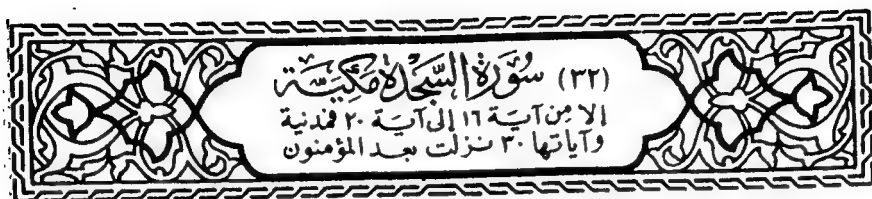 (٣٢) سُورَة السَّجْدَة مَكِّيَّة
إلا مِن آيَة ١٦ إلى آيَة ٢٠ فمدنية
وآياتها ٣٠ نزلت بعد المؤمنون